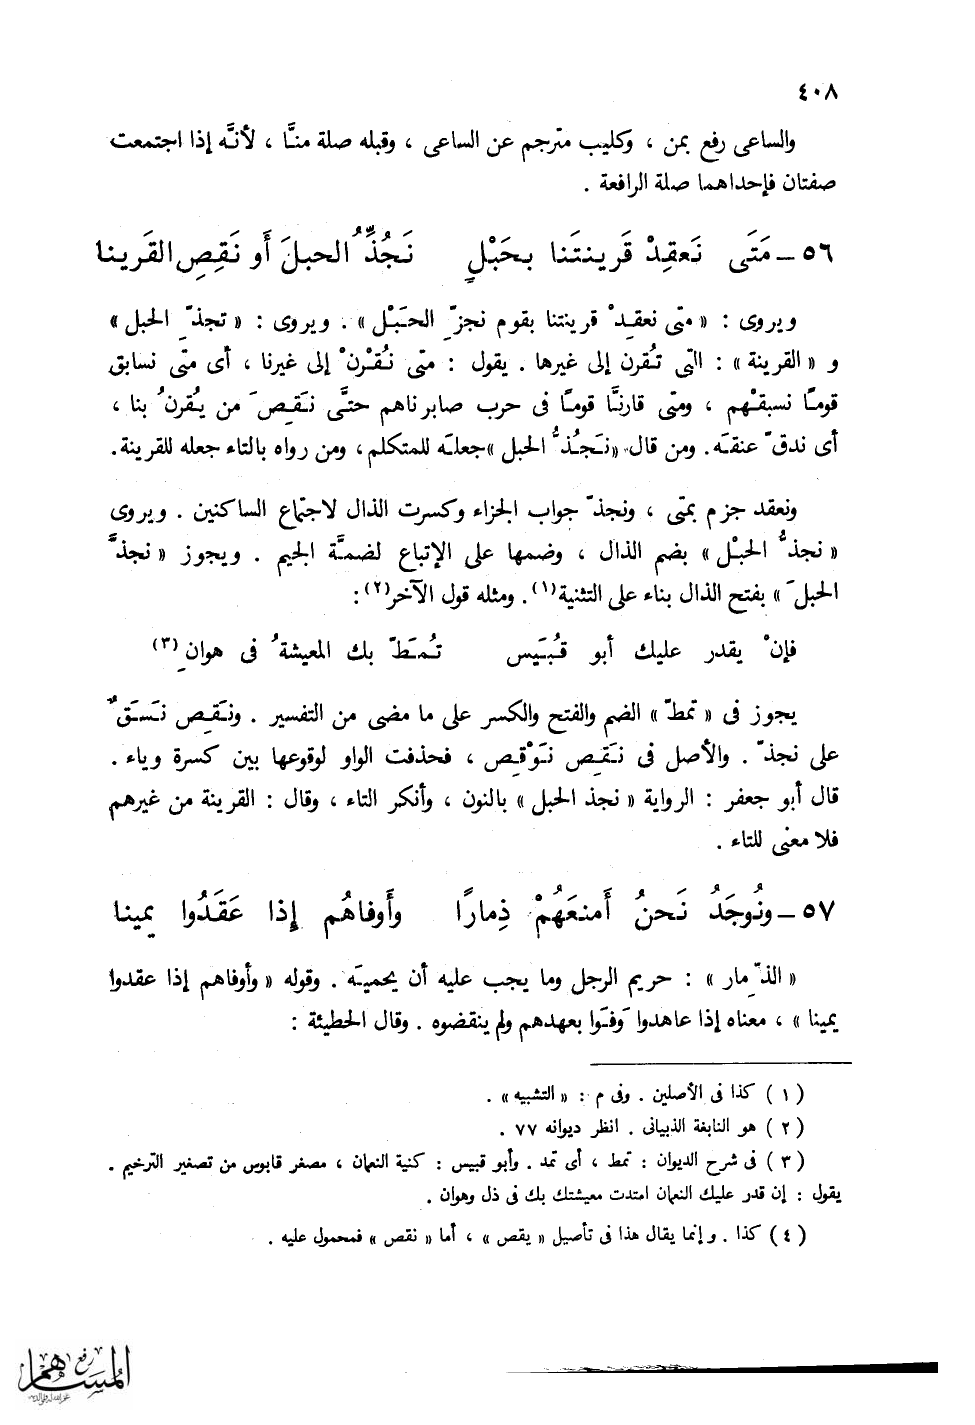 ٤٠٨
والساعى رفع بمن ، وكليب مترجم عن الساعى ، وقبله صلة منَّا ، لأنَّه إذا اجتمعت
صفتان فإحداهما صلة الرافعة .
٥٦ ــ مَتَى نَعقِدْ قَرينتَنا بحَبْلٍ نَجُذِّ ُ الحبلَ أو نَقِصِ القَرينا
ويروى : « متى نعقِدْ قرينتنا بقوم نجزِّ الحَبْل » . ويروى : « تجذِّ الحبل »
و « القرينة » : التى تُقرن إلى غيرها . يقول : متى نُقْرنْ إلى غيرنا ، أى متى نسابق
قومًا نسبقْهم ، ومتى قارنَّا قومًا فى حرب صابرناهم حتَّى نَقِصَ من يُقرنُ بنا ،
أى ندقّ عنقَه . ومن قال « نَجُذُّ الحبل » جعلَه للمتكلم ، ومن رواه بالتاء جعله للقرينة .
ونعقد جزم بمتى ، ونجذّ جواب الجزاء وكسرت الذال لاجتماع الساكنين . ويروى
« نجذُّ الحبْل » بضم الذال ، وضمها على الإتباع لضمَّة الجيم . ويجوز « نجذَّ
الحبلَ » بفتح الذال بناء على التثنية (١) . ومثله قول الآخر (٢) :
فإنْ يقدر عليك أبو قُبَيس تُمَطّ بك المعيشةُ فى هوانِ (٣)
يجوز فى « تمطّ » الضم والفتح والكسر على ما مضى من التفسير . ونَقِص نَسَقٌ
على نجذّ . والأصل فى نَقِص نَوْقِص ، فحذفت الواو لوقوعها بين كسرة وياء .
قال أبو جعفر : الرواية « نجذ الحبل » بالنون ، وأنكر التاء ، وقال : القرينة من غيرهم
فلا معنى للتاء .
٥٧ ــ ونُوجَدُ نَحنُ أَمنعَهُمْ ذِمارًا وأَوفاهُم إِذا عَقَدُوا يمينا
« الذِّمار » : حريم الرجل وما يجب عليه أن يحميَه . وقوله « وأوفاهم إذا عقدوا
يمينا » ، معناه إذا عاهدوا وَفَوا بعهدهم ولم ينقضوه . وقال الحطيئة :
( ١ ) كذا فى الأصلين . وفى م : « التشبيه » .
( ٢ ) هو النابغة الذبيانى . انظر ديوانه ٧٧ .
( ٣ ) فى شرح الديوان : تمط ، أى تمد . وأبو قبيس : كنية النعمان ، مصغر قابوس من تصغير الترخيم .
يقول : إن قدر عليك النعمان امتدت معيشتك بك فى ذل وهوان .
( ٤ ) كذا . وإنما يقال هذا فى تأصيل « يقص » ، أما « نقص » فمحمول عليه .